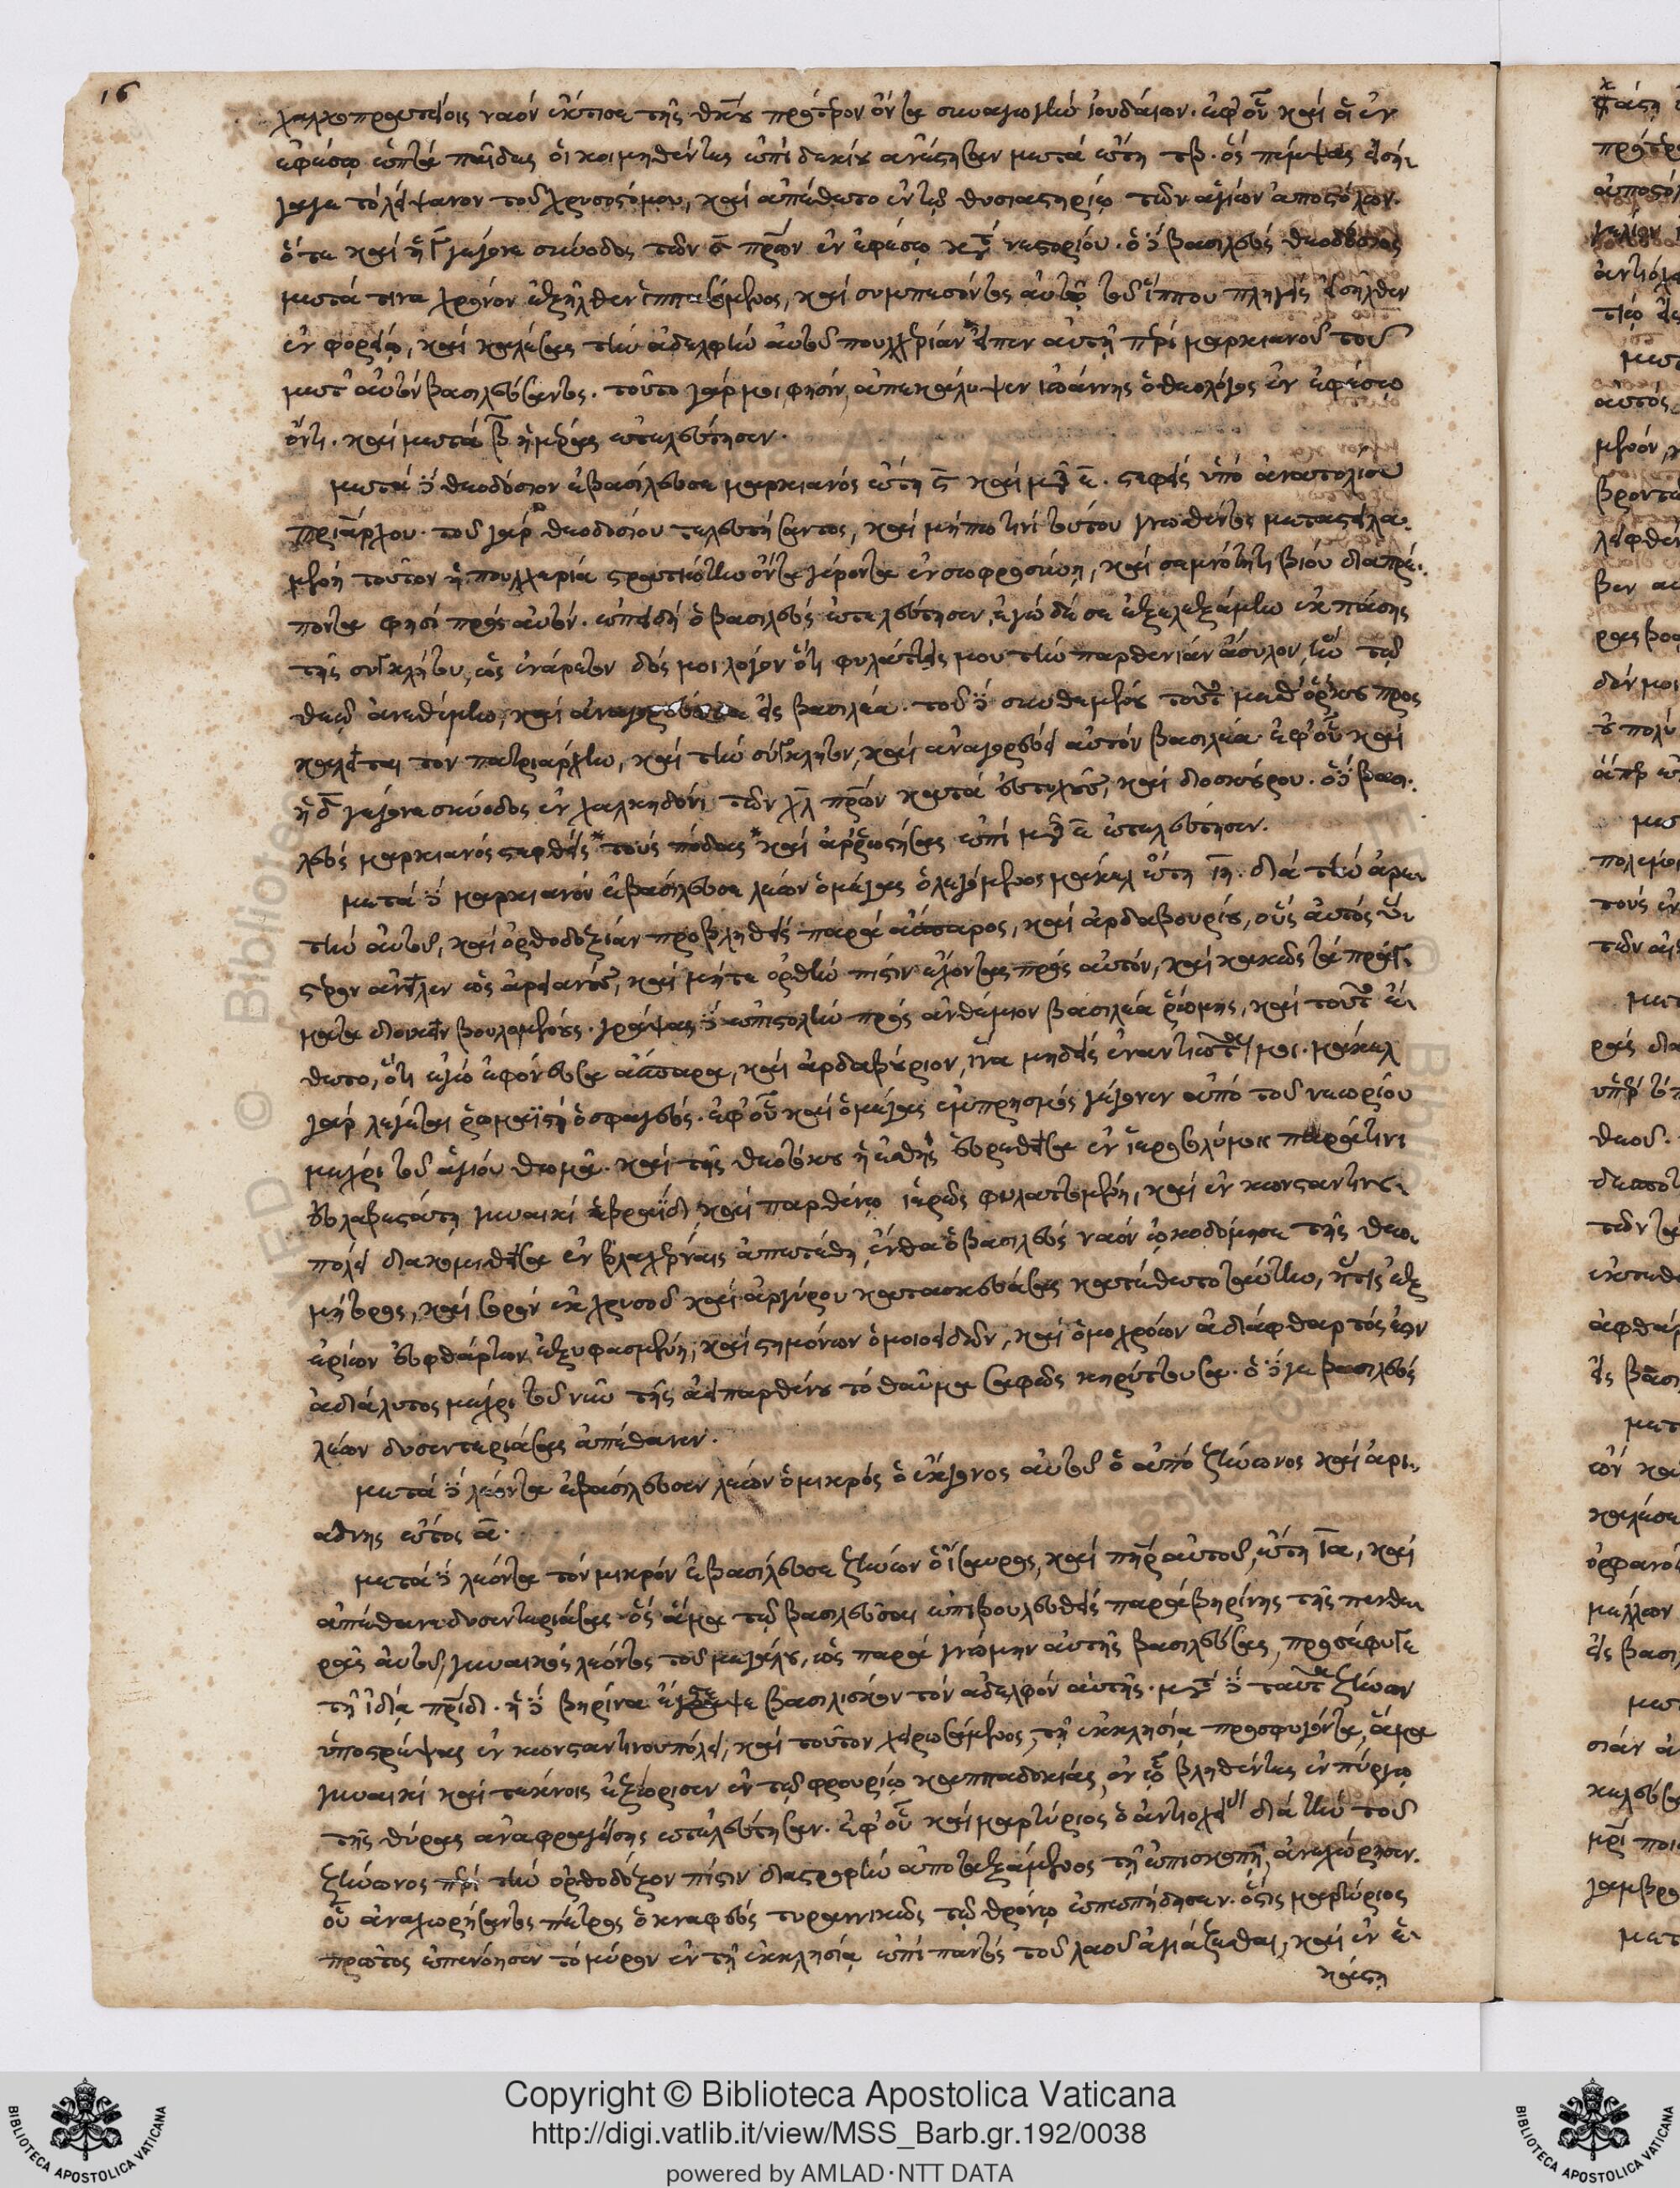 16
χαλκοπρατείοις ναὸν ἔκτισε τῆς θκου πρότερον ὄντα συναγωγὴν ἰουδαίων. ἐφ' οὗ καὶ οἱ ἐν
ἐφέσῳ ἑπτὰ παῖδες οἱ κοιμηθέντες ἐπὶ δεκίου ἀνέστησαν μετὰ ἔτη τβ. ὃς πέμψας εἰσή-
γαγε τὸ λείψανον τοῦ χρυσοστόμου, καὶ ἀπέθετο ἐν τῷ θυσιαστηρίῳ τῶν ἁγίων ἀποστόλων.
ὅτε καὶ ἡ Γ γέγονε σύνοδος τῶν σ πρων ἐν ἐφέσῳ κατὰ νεστορίου. ὁ δὲ βασιλεὺς θεοδόσιος
μετά τινα χρόνον ἐξῆλθεν ἱππασόμενος, καὶ συμπεσόντος αὐτῷ τοῦ ἵππου πληγεὶς εἰσῆλθεν
ἐν φορείῳ, καὶ καλέσας τὴν ἀδελφὴν αὐτοῦ πουλχερίαν εἶπεν αὐτῇ περὶ μαρκιανοῦ τοῦ
μετ' αὐτὸν βασιλεύσαντος. τοῦτο γάρ μοι φησὶν, ἀπεκάλυψεν ἰωάννης ὁ θεολόγος ἐν ἐφέσῳ
ὄντι. καὶ μετὰ β ἡμέρας ἐτελεύτησεν.
μετὰ δὲ θεοδόσιον ἐβασίλευσε μαρκιανὸς ἔτη ς καὶ μῆνας ε. στεφεὶς ὑπὸ ἀνατολίου
πριάρχου. τοῦ γὰρ θεοδοσίου τελευτήσαντος, καὶ μήπω τινὶ τούτου γνωσθέντος μεταστειλα-
μένη τοῦτον ἡ πουλχερία στρατιώτην ὄντα γέροντα ἐν σωφροσύνῃ, καὶ σεμνότητι βίου διαπρέ-
ποντα φησὶ πρὸς αὐτόν. ἐπειδὴ ὁ βασιλεὺς ἐτελεύτησεν, ἐγὼ δέ σε ἐξελεξάμην ἐκ πάσης
τῆς συγκλήτου, ὡς ἐνάρετον δός μοι λόγον ὅτι φυλάττεις μου τὴν παρθενίαν ἄσυλον, ἣν τῷ
θεῷ ἀνεθέμην, καὶ ἀναγορεύσω σε εἰς βασιλέα. τοῦ δὲ συνθεμένου τοῦτο μεθ' ὅρκου προσ
καλεῖται τὸν πατριάρχην, καὶ τὴν σύγκλητον, καὶ ἀναγορεύει αὐτὸν βασιλέα. ἐφ' οὗ καὶ
ἡ δ γέγονε σύνοδος ἐν χαλκηδόνι τῶν χλ πρων κατὰ εὐτυχοῦς, καὶ διοσκόρου. ὁ δὲ βασι-
λεὺς μαρκιανὸς στερηθεὶς τοὺς πόδας καὶ ἀρρωστήσας ἐπὶ μῆνας ε ἐτελεύτησεν.
μετὰ δὲ μαρκιανὸν ἐβασίλευσε λέων ὁ μέγας ὁ λεγόμενος μάκελ ἔτη ιη. διὰ τὴν ἀρε-
τὴν αὐτοῦ, καὶ ὀρθοδοξίαν προβληθεὶς παρὰ ἄσπαρος, καὶ ἀρδαβουρίου, οὓς αὐτὸς ὕ-
στερον ἀνεῖλεν ὡς ἀρειανοὺς, καὶ μήτε ὀρθὴν πίστιν ἔχοντας πρὸς αὐτόν, καὶ κακῶς τὰ πράγ-
ματα διοικεῖν βουλομένους. γράψας δὲ ἐπιστολὴν πρὸς ἀνθέμιον βασιλέα ῥώμης, καὶ τοῦτο ἐ-
θετο, ὅτι ἐγὼ ἐφόνευσα ἄσπαρα, καὶ ἀρδαβούριον, ἵνα μηδεὶς ἐναντιωθῇ μοι. μάκελ
γὰρ λέγεται ῥωμαϊστὶ ὁ σφαγεύς. ἐφ' οὗ καὶ ὁ μέγας ἐμπρησμὸς γέγονεν ἀπὸ τοῦ νεωρίου
μέχρι τοῦ ἁγίου θωμᾶ. καὶ τῆς θεοτόκου ἡ ἐσθὴς εὑρεθεῖσα ἐν ἱεροσολύμοις παρά τινι
εὐλαβεστάτῃ γυναικὶ ἑβραΐδι, καὶ παρθένῳ ἱερῶς φυλαττομένη, καὶ ἐν κωνσταντινου-
πόλει διακομισθεῖσα ἐν βλαχέρναις ἀπετέθη, ἔνθα ὁ βασιλεὺς ναὸν ᾠκοδόμησε τῆς θεο-
μήτορος, καὶ σορὸν ἐκ χρυσοῦ καὶ ἀργύρου κατασκευάσας κατέθετο ταύτην, ἥτις ἐξ
ἐρίων εὐφθάρτων ἐξυφασμένη, καὶ στημόνων ὁμοιοειδῶν, καὶ ὁμοχρόων ἀδιάφθαρτός ἐστιν
ἀδιάλυτος μέχρι τοῦ νῦν τῆς ἀειπαρθένου τὸ θαῦμα σαφῶς κηρύττουσα. ὁ δέ γε βασιλεὺς
λέων δυσεντεριάσας ἀπέθανεν.
μετὰ δὲ λέοντα ἐβασίλευσεν λέων ὁ μικρὸς ὁ ἔκγονος αὐτοῦ ὁ ἀπὸ ζήνωνος καὶ ἀρι-
άδνης ἔτος α.
μετὰ δὲ λέοντα τὸν μικρὸν ἐβασίλευσε ζήνων ὁ ἴσαυρος, καὶ πηρ αὐτοῦ, ἔτη ια, καὶ
ἀπέθανε δυσεντεριάσας. ὃς ἅμα τῷ βασιλεῦσαι ἐπιβουλευθεὶς παρὰ βηρίνης τῆς πενθε-
ρᾶς αὐτοῦ, γυναικὸς λέοντος τοῦ μεγάλου, ὡς παρὰ γνώμην αὐτῆς βασιλεύσας, προσέφυγε
τῇ ἰδίᾳ πρίδι. ἡ δὲ βηρίνα ἔστεψε βασιλίσκον τὸν ἀδελφὸν αὐτῆς. μετὰ δὲ ταῦτα ζήνων
ὑποστρέψας ἐν κωνσταντινουπόλει, καὶ τοῦτον χειρωσάμενος, τῇ ἐκκλησίᾳ προσφυγόντα, ἅμα
γυναικὶ καὶ τέκνοις ἐξώρισεν ἐν τῷ φρουρίῳ καππαδοκίας, ἐν ᾧ βληθέντες ἐν πύργῳ
τῆς θύρας ἀναφραγείσης ἐτελεύτησαν. ἐφ' οὗ καὶ μαρτύριος ὁ ἀντιοχείας διὰ τὴν τοῦ
ζήνωνος περὶ τὴν ὀρθόδοξον πίστιν διαστροφὴν ἀποταξάμενος τῇ ἐπισκοπῇ, ἀνεχώρησεν.
οὗ ἀναχωρήσαντος πέτρος ὁ κναφεὺς τυραννικῶς τῷ θρόνῳ ἐπεπήδησεν. ὅστις μαρτύριος
πρῶτος ἐπενόησεν τὸ μύρον ἐν τῇ ἐκκλησίᾳ ἐπὶ παντὸς τοῦ λαοῦ ἁγιάζεσθαι, καὶ ἐν ἑ-
κάστῃ
Copyright © Biblioteca Apostolica Vaticana
http://digi.vatlib.it/view/MSS_Barb.gr.192/0038
powered by AMLAD · NTT DATA
BIBLIOTECA APOSTOLICA VATICANA
BIBLIOTECA APOSTOLICA VATICANA